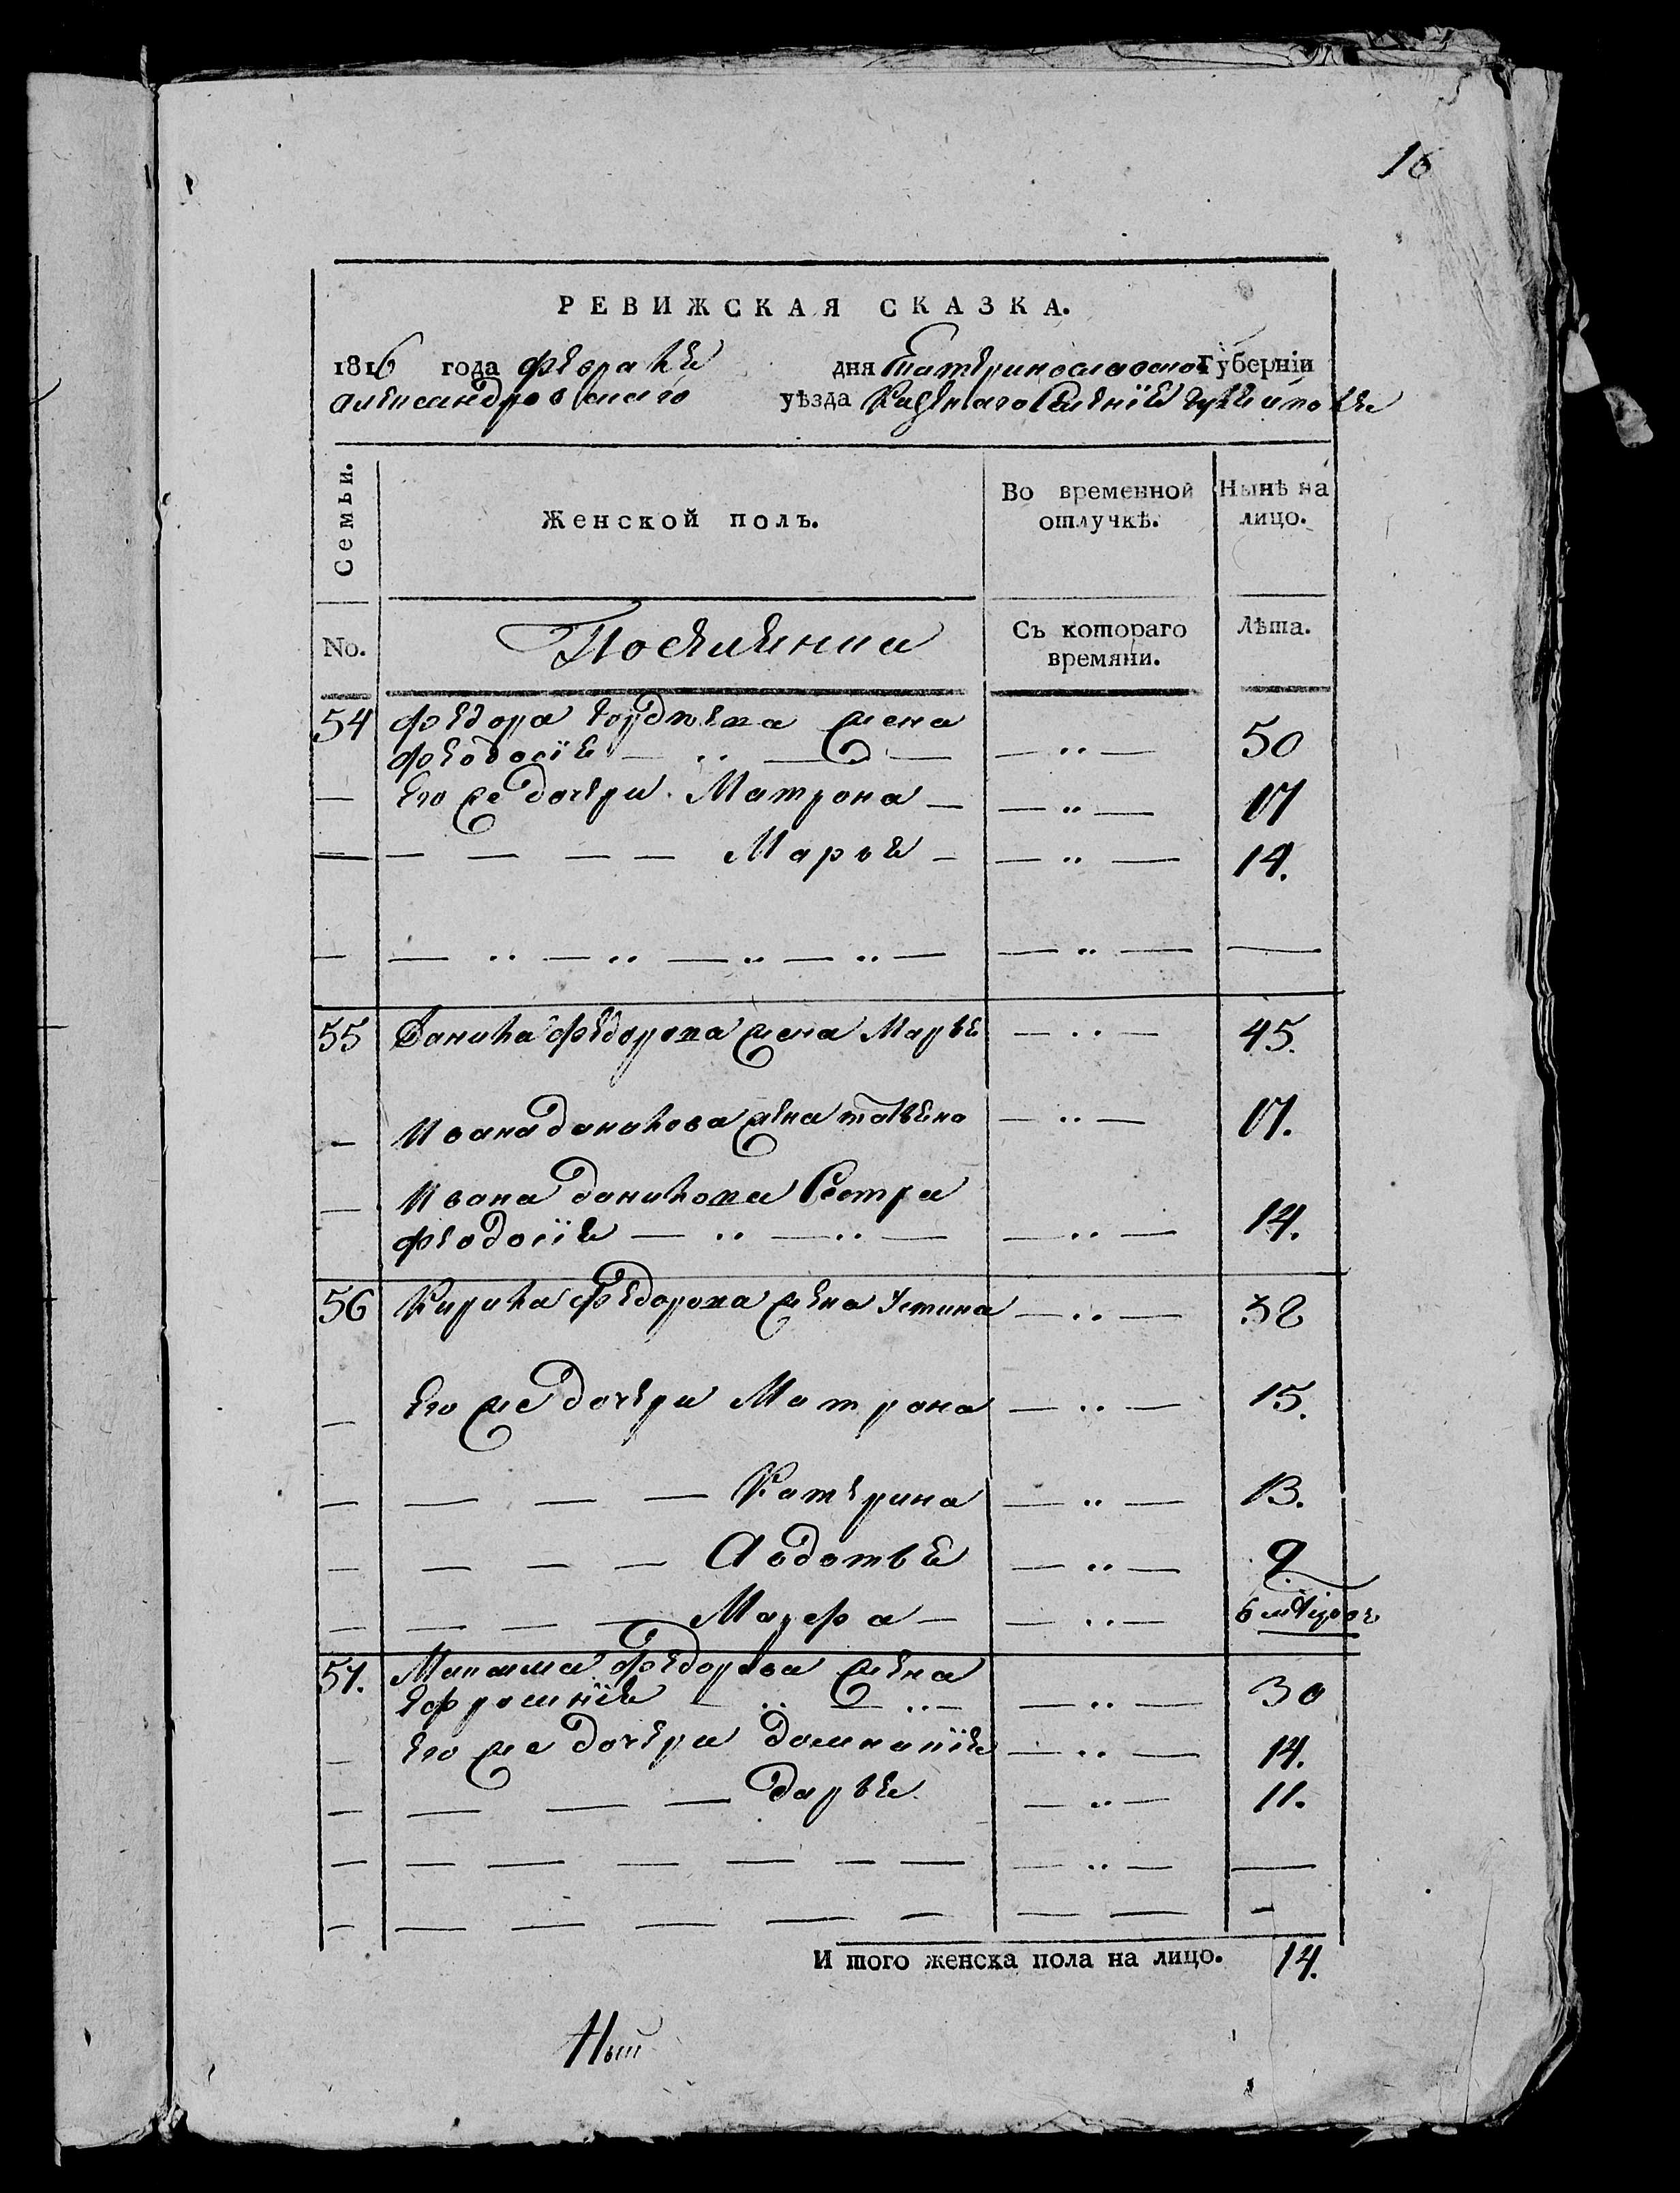 16
РЕВИЖСКАЯ СКАЗКА.
1816 года февраля дня Екатеринославской Губерніи
Александровскаго уѣзда Казеннаго селенія
Семьи.
Женской полъ.
Во временной отлучкѣ.
Нынѣ на лицо.
No.
Поселянки
Съ котораго времяни.
Лѣта.
54 Федора Гордѣева жена
Феодосія — 50
— Его же дочери Матрона — 17
— Марья — 14.
55 Данила Федорова жена Марья — 45.
— Ивана Данилова жена — 17.
— Ивана Данилова Сестра
Феодосія — 14.
56 Кирила Федорова жена Устина — 38
— Его же дочери Матрона — 15.
— Катерина — 13.
— Авдотья — 9.
— Марфа — 6
57. Максима Федорова жена
Ефросинія — 30
— Его же дочери Домникія — 14.
— Дарья — 11.
И того женска пола на лицо. 14.